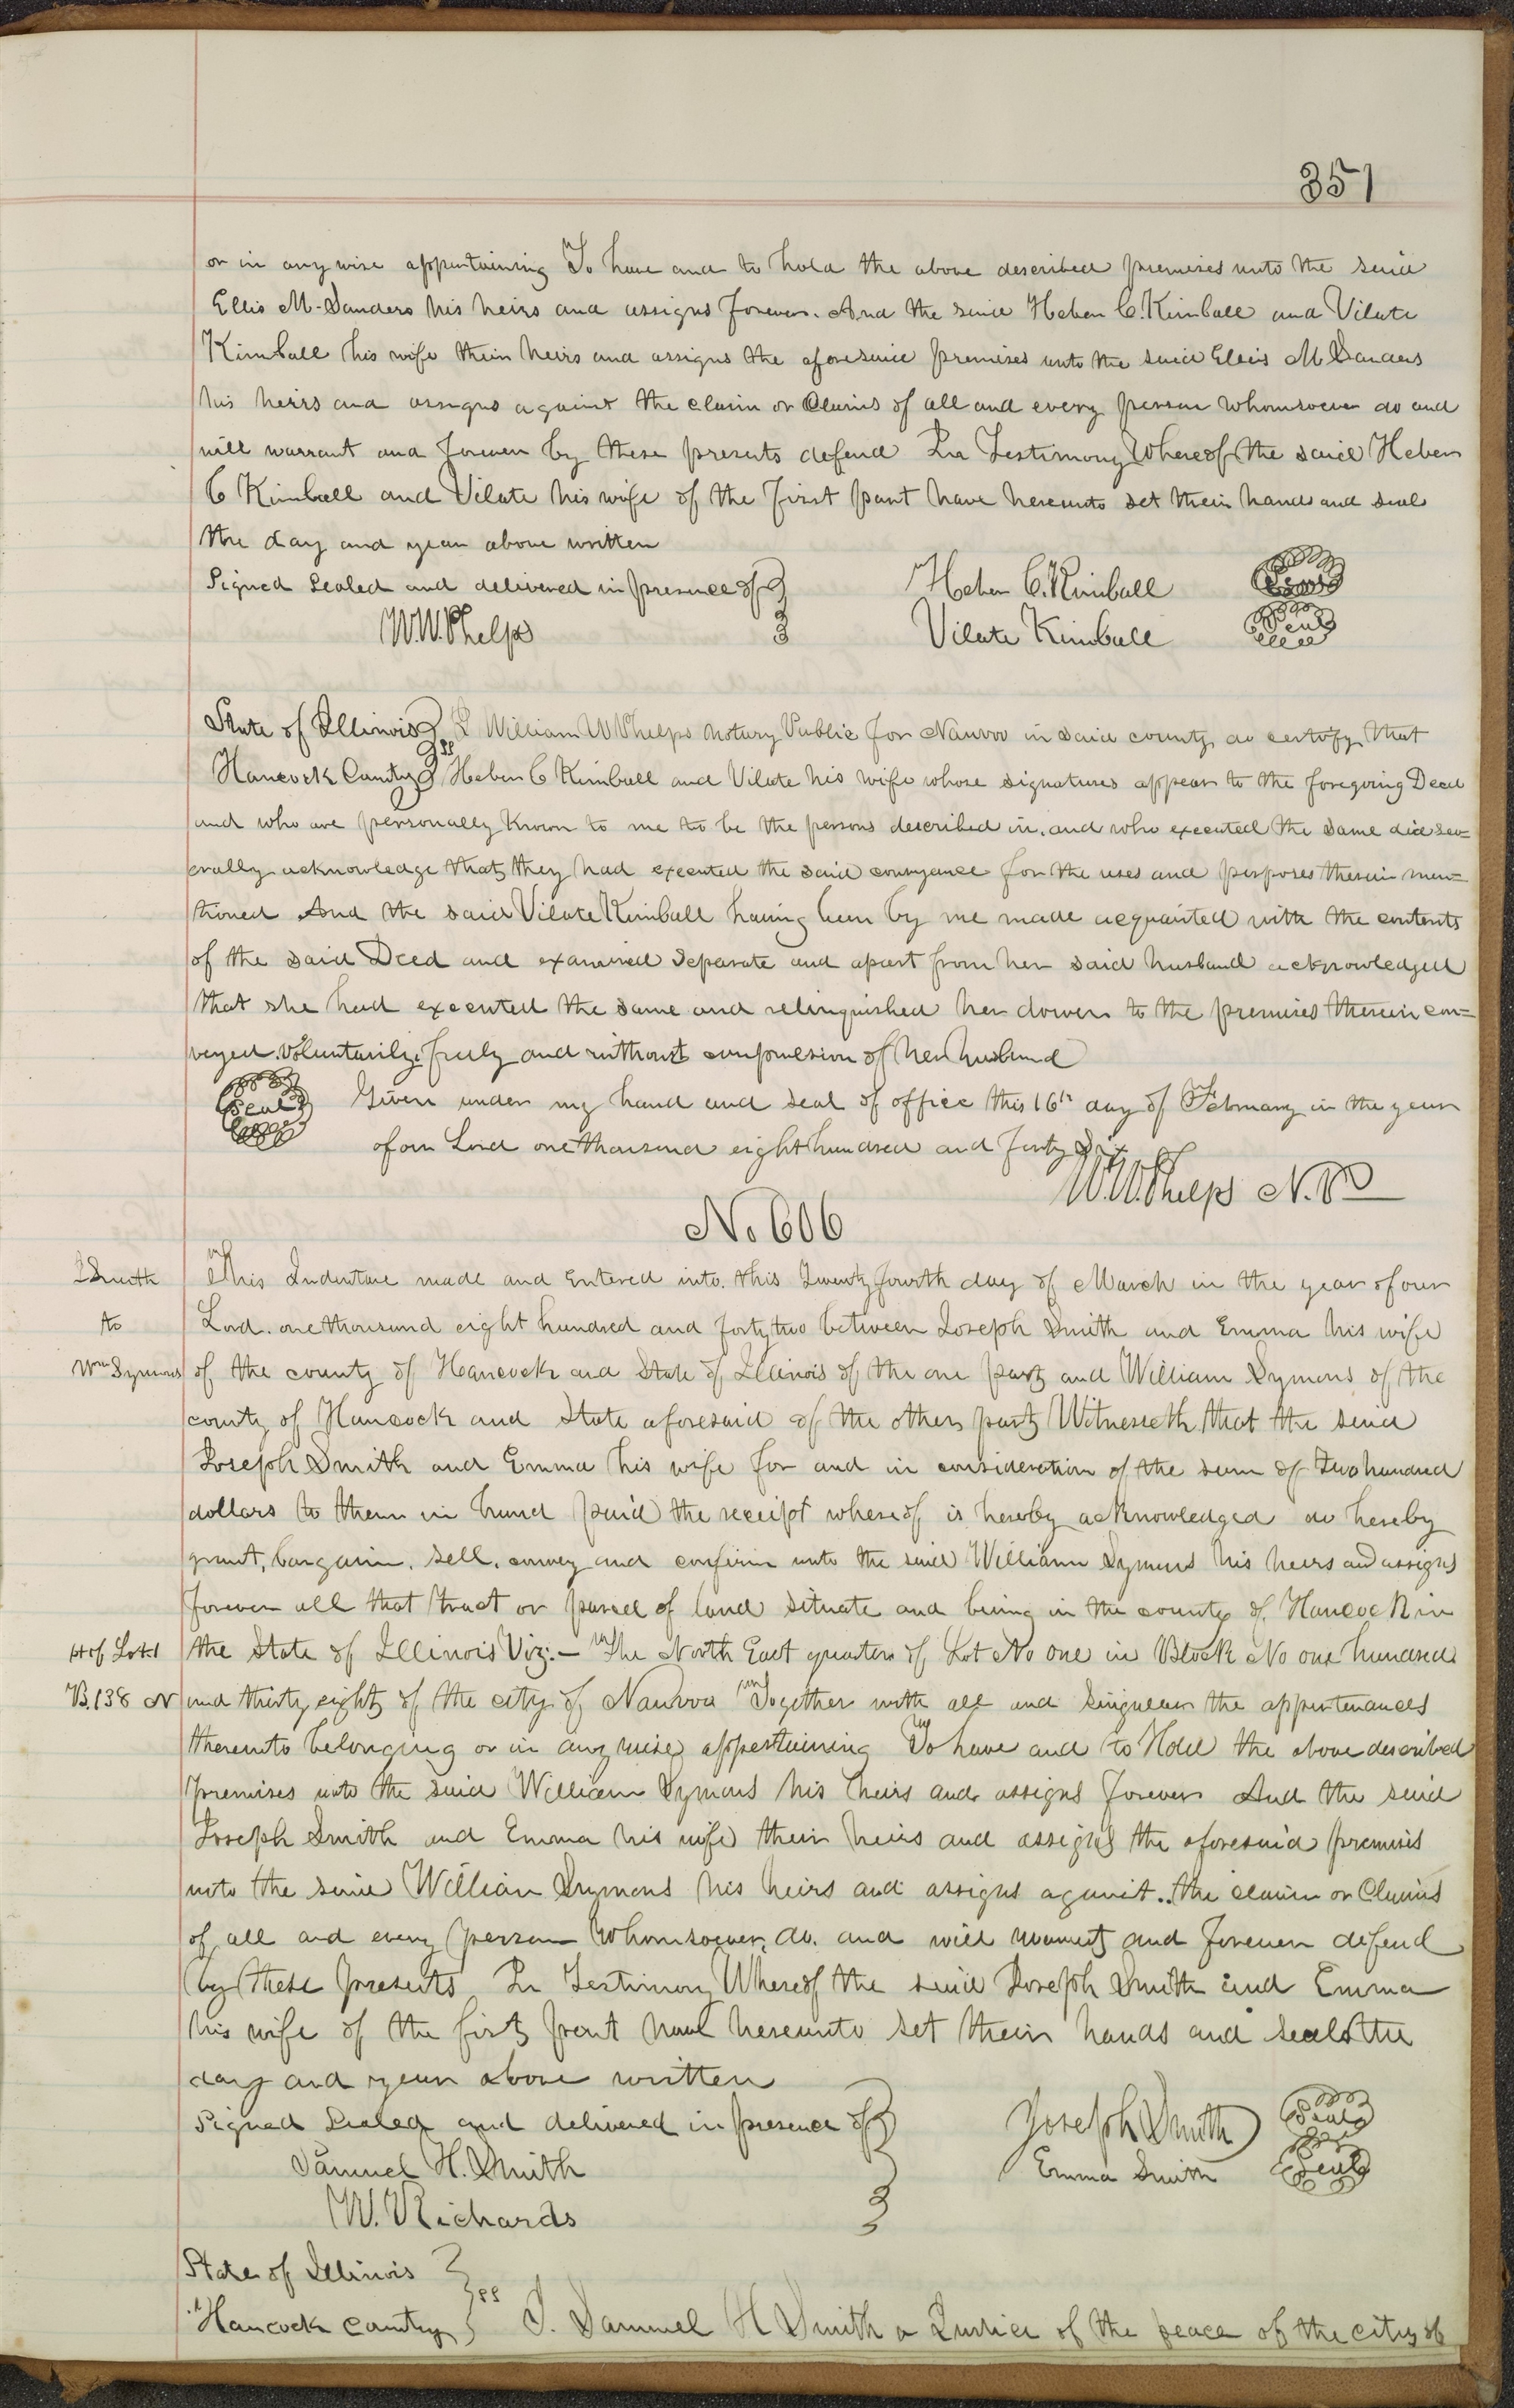 351
or in any wise appurtaining To have and to hold the above described premises unto the said
Ellis M. Sanders his heirs and assigns forever. And the said Heber C. Kimball and Vilate
Kimball his wife their heirs and assigns the aforesaid premises unto the said Ellis M Sanders
his heirs and assigns against the claim or Claims of all and every person whomsoever do and
will warrant and forever by these presents defend In Testimony Whereof the said Heber
C Kimball and Vilate his wife of the first part have hereunto set their hands and seals
the day and year above written
Signed Sealed and delivered in presence of Heber C. Kimball Seal
W.W. Phelps Vilate Kimball Seal
State of Illinois ss I William W Phelps Notary Public for Nauvoo in said county do certify that
Hancock County Heber C Kimball and Vilate his wife whose signatures appear to the foregoing Deed
and who are personally known to me to be the persons described in, and who executed the same did sev=
erally acknowledge that they had executed the said conveyance for the uses and purposes therein men=
tioned And the said Vilate Kimball having been by me made acquainted with the contents
of the said Deed and examined separate and apart from her said husband acknowledged
that she had executed the same and relinquished her dower to the premises therein con=
veyed. voluntarily, freely and without compulsion of her husband
Seal Given under my hand and seal of office this 16th day of February in the year
of our Lord one thousand eight hundred and forty Six
W.W. Phelps N.P.
No 606
J Smith This Indenture made and Entered into. this Twenty fourth day of March in the year of our
to Lord. one thousand eight hundred and forty two between Joseph Smith and Emma his wife
Wm Symons of the county of Hancock and State of Illinois of the one part and William Symons of the
county of Hancock and State aforesaid of the other part Witnesseth, that the said
Joseph Smith and Emma his wife for and in consideration of the sum of Two hundred
dollars to them in hand paid the receipt whereof is hereby acknowledged do hereby
grant, bargain, sell, convey and confirm unto the said William Symons his heirs and assigns
forever all that tract or parcel of land situate and being in the county of Hancock in
pt of Lot 1 the State of Illinois Viz:— The North East quarter of Lot No one in Block No one hundred
B. 138 N and thirty eight of the city of Nauvoo Together with all and Singular the appurtenances
thereunto belonging or in any wise appertaining To have and to Hold the above described
premises unto the said William Symons his heirs and assigns forever And the said
Joseph Smith and Emma his wife their heirs and assigns the aforesaid premises
unto the said William Symons his heirs and assigns against.. the claim or Claims
of all and every person Whomsoever, do. and will warrant and forever defend
by these presents In Testimony Whereof the said Joseph Smith and Emma
his wife of the first part have hereunto set their hands and seals the
day and year above written
Signed Sealed and delivered in presence of Joseph Smith Seal
Samuel H. Smith Emma Smith Seal
W. Richards
State of Illinois
Hancock county ss I. Samuel H Smith a Justice of the peace of the city of